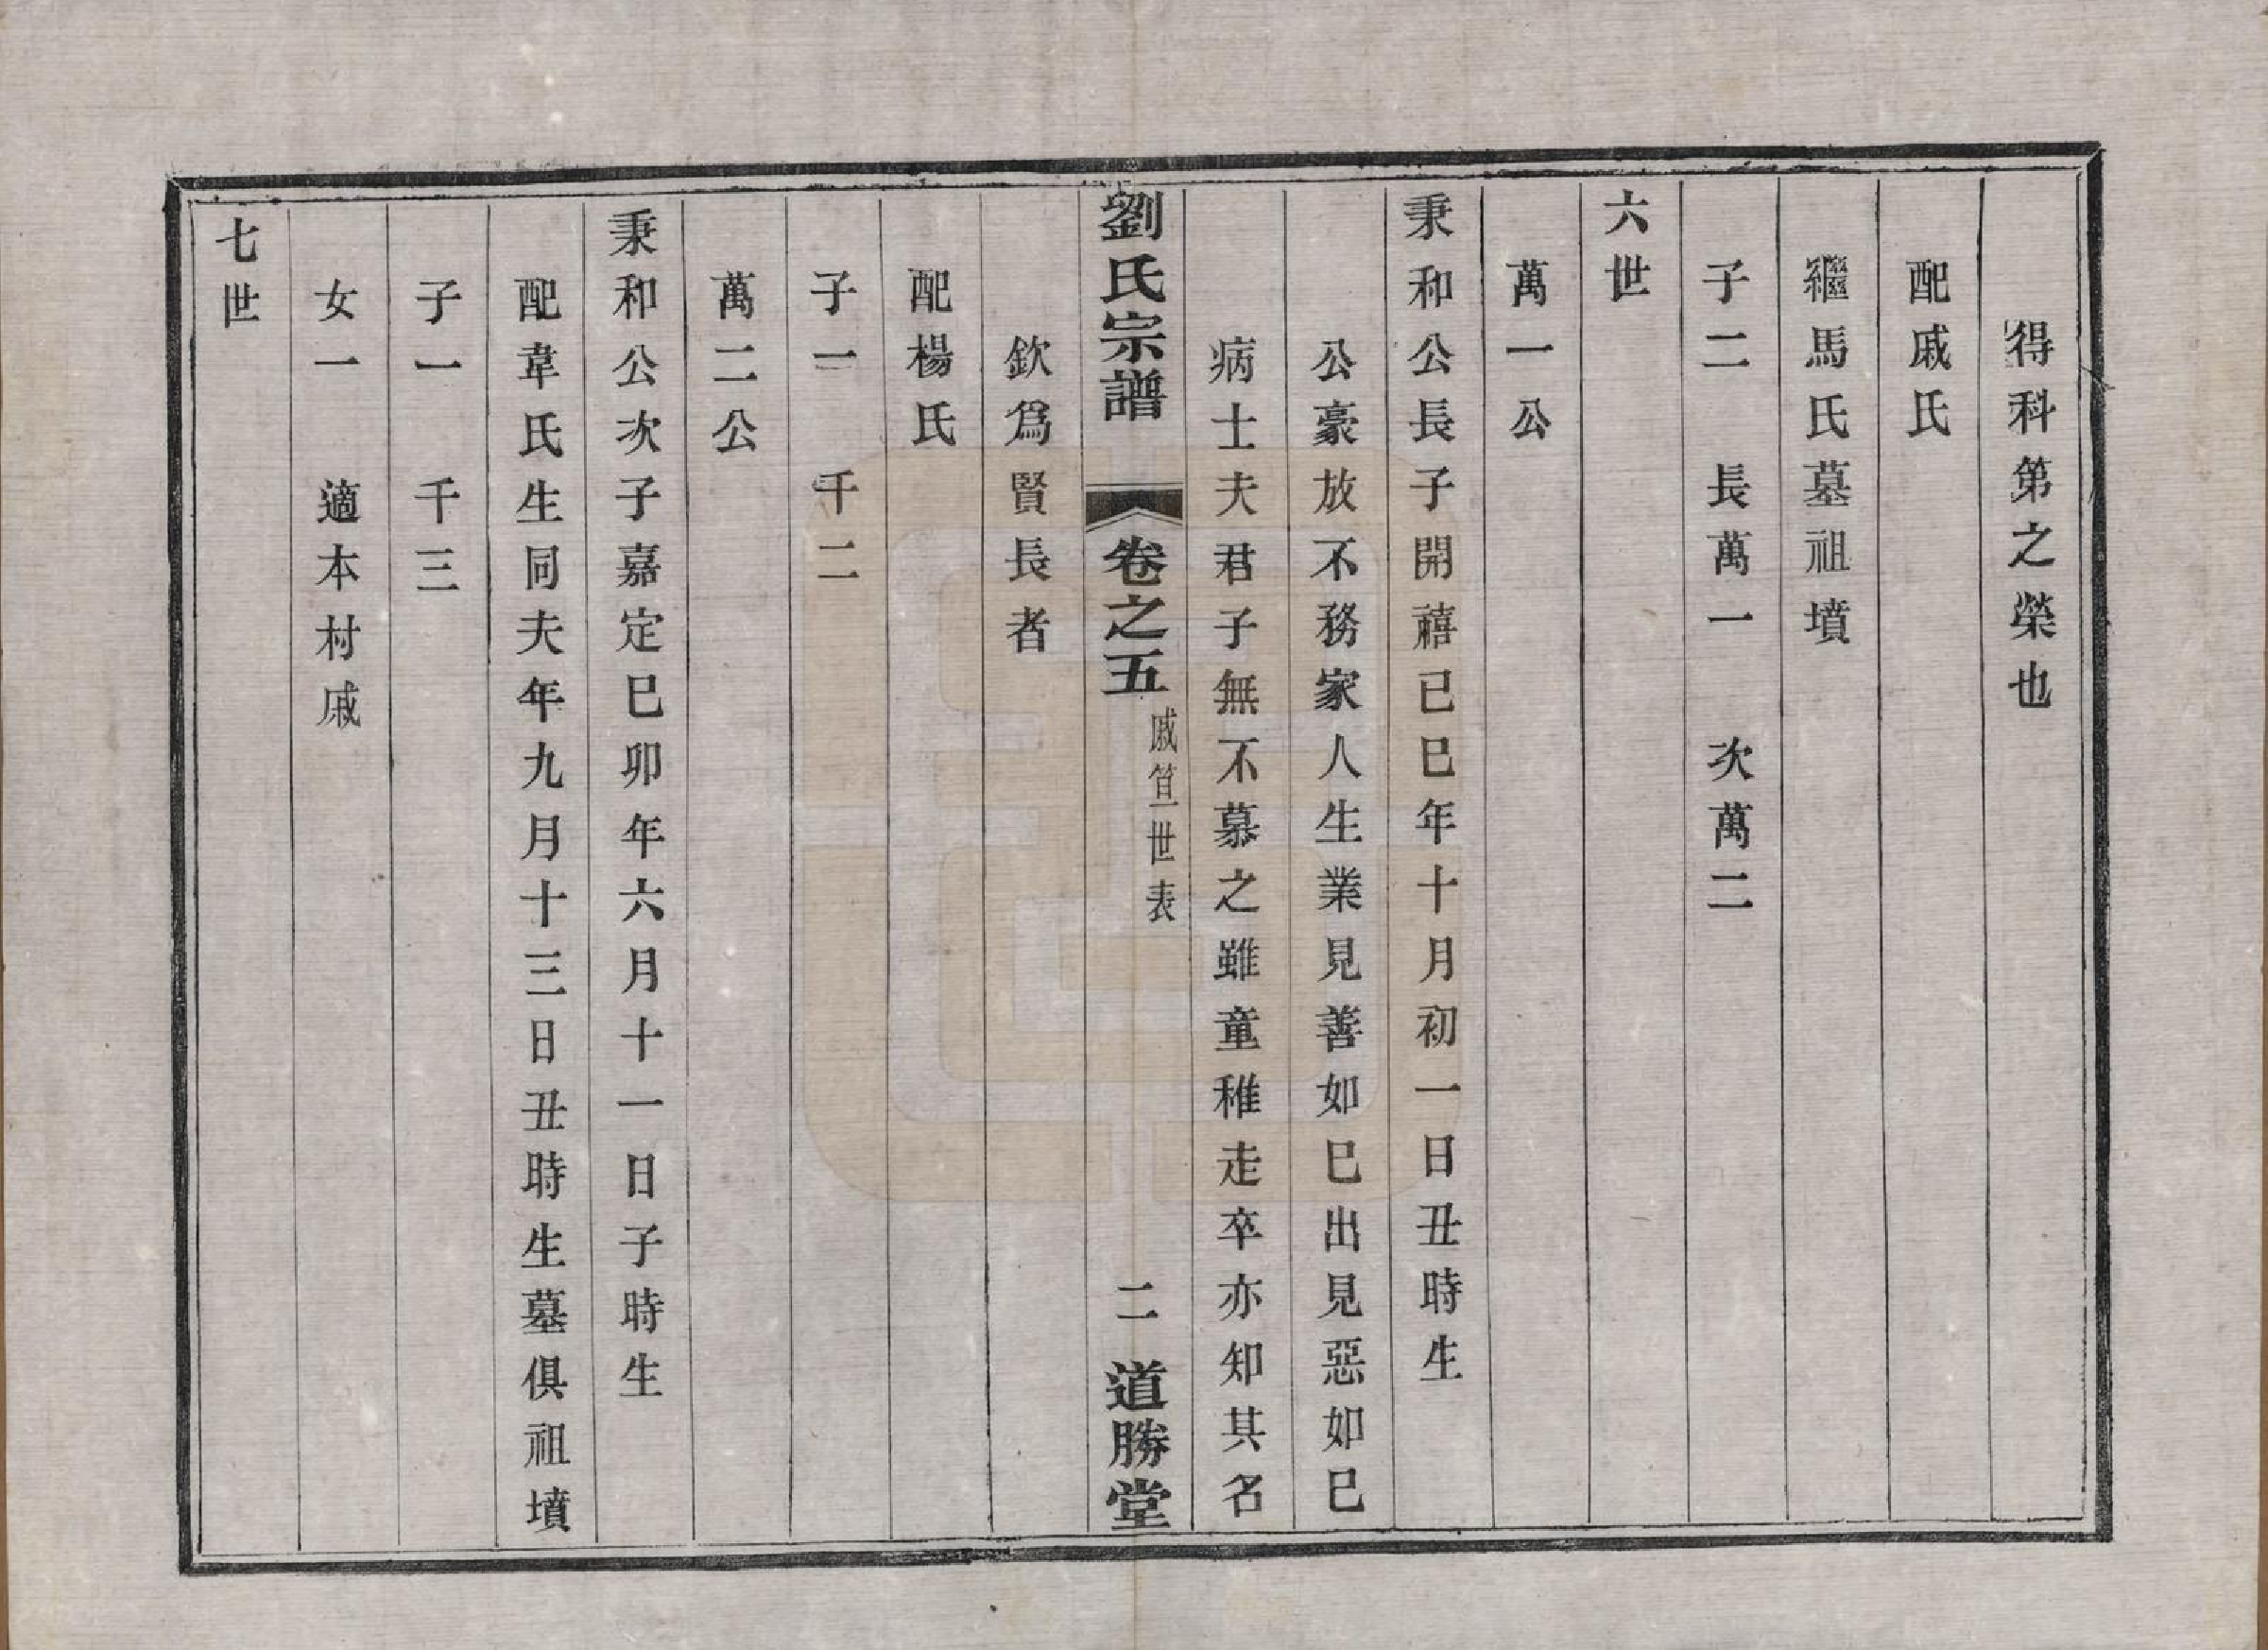 得科第之榮也
配戚氏
繼馬氏墓祖墳
子二　長萬一　次萬二
六世
萬一公
秉和公長子開禧巳巳年十月初一日丑時生
公豪放不務家人生業見善如巳出見惡如巳
病士夫君子無不慕之雖童稚走卒亦知其名
劉氏宗譜　卷之五　戚笪世表　二　道勝堂
欽爲賢長者
配楊氏
子一　千二
萬二公
秉和公次子嘉定巳卯年六月十一日子時生
配韋氏生同夫年九月十三日丑時生墓俱祖墳
子一　千三
女一　適本村戚
七世